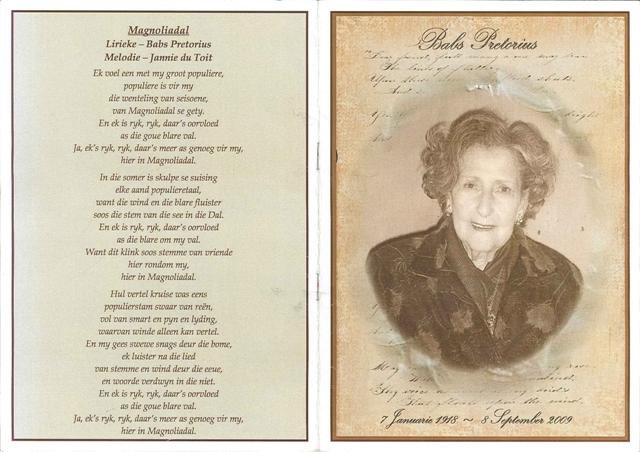 Magnoliadal
Lirieke – Babs Pretorius
Melodie – Jannie du Toit
Ek voel een met my groot populiere,
populiere is vir my
die wenteling van seisoene,
van Magnoliadal se gety.
En ek is ryk, ryk, daar's oorvloed
as die goue blare val.
Ja, ek's ryk, ryk, daar's meer as genoeg vir my,
hier in Magnoliadal.
In die somer is skulpe se suising
elke aand populieretaal,
want die wind en die blare fluister
soos die stem van die see in die Dal.
En ek is ryk, ryk, daar's oorvloed
as die blare om my val.
Want dit klink soos stemme van vriende
hier rondom my,
hier in Magnoliadal.
Hul vertel kruise was eens
populierstam swaar van reën,
vol van smart en pyn en lyding,
waarvan winde alleen kan vertel.
En my gees swewe snags deur die bome,
ek luister na die lied
van stemme en wind deur die eeue,
en woorde verdwyn in die niet.
En ek is ryk, ryk, daar's oorvloed
as die goue blare val.
Ja, ek's ryk, ryk, daar's meer as genoeg vir my,
hier in Magnoliadal.
Babs Pretorius
7 Januarie 1918 ~ 8 September 2009